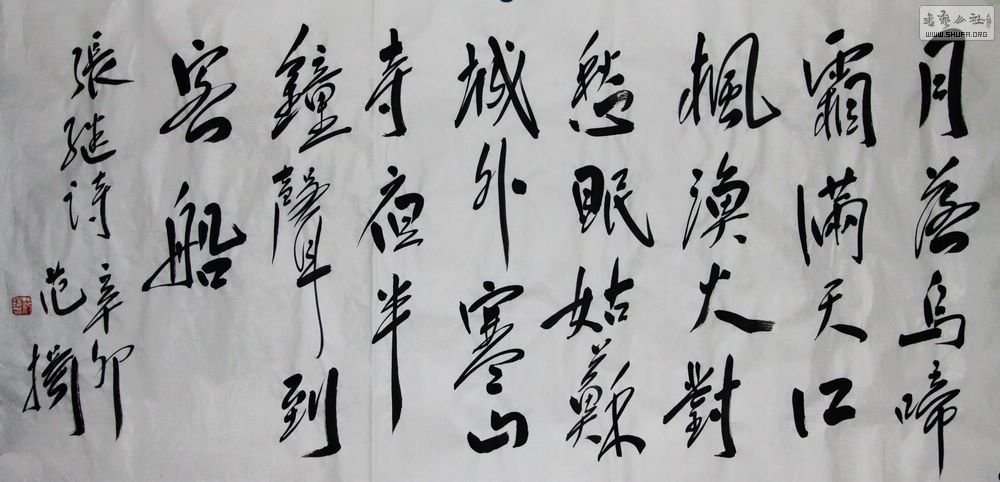 月落烏啼
霜滿天江
楓漁火對
愁眠姑蘇
城外寒山
寺夜半
鐘聲到
客船
張繼詩 辛卯
范
書藝公社
WWW.SHUFA.ORG